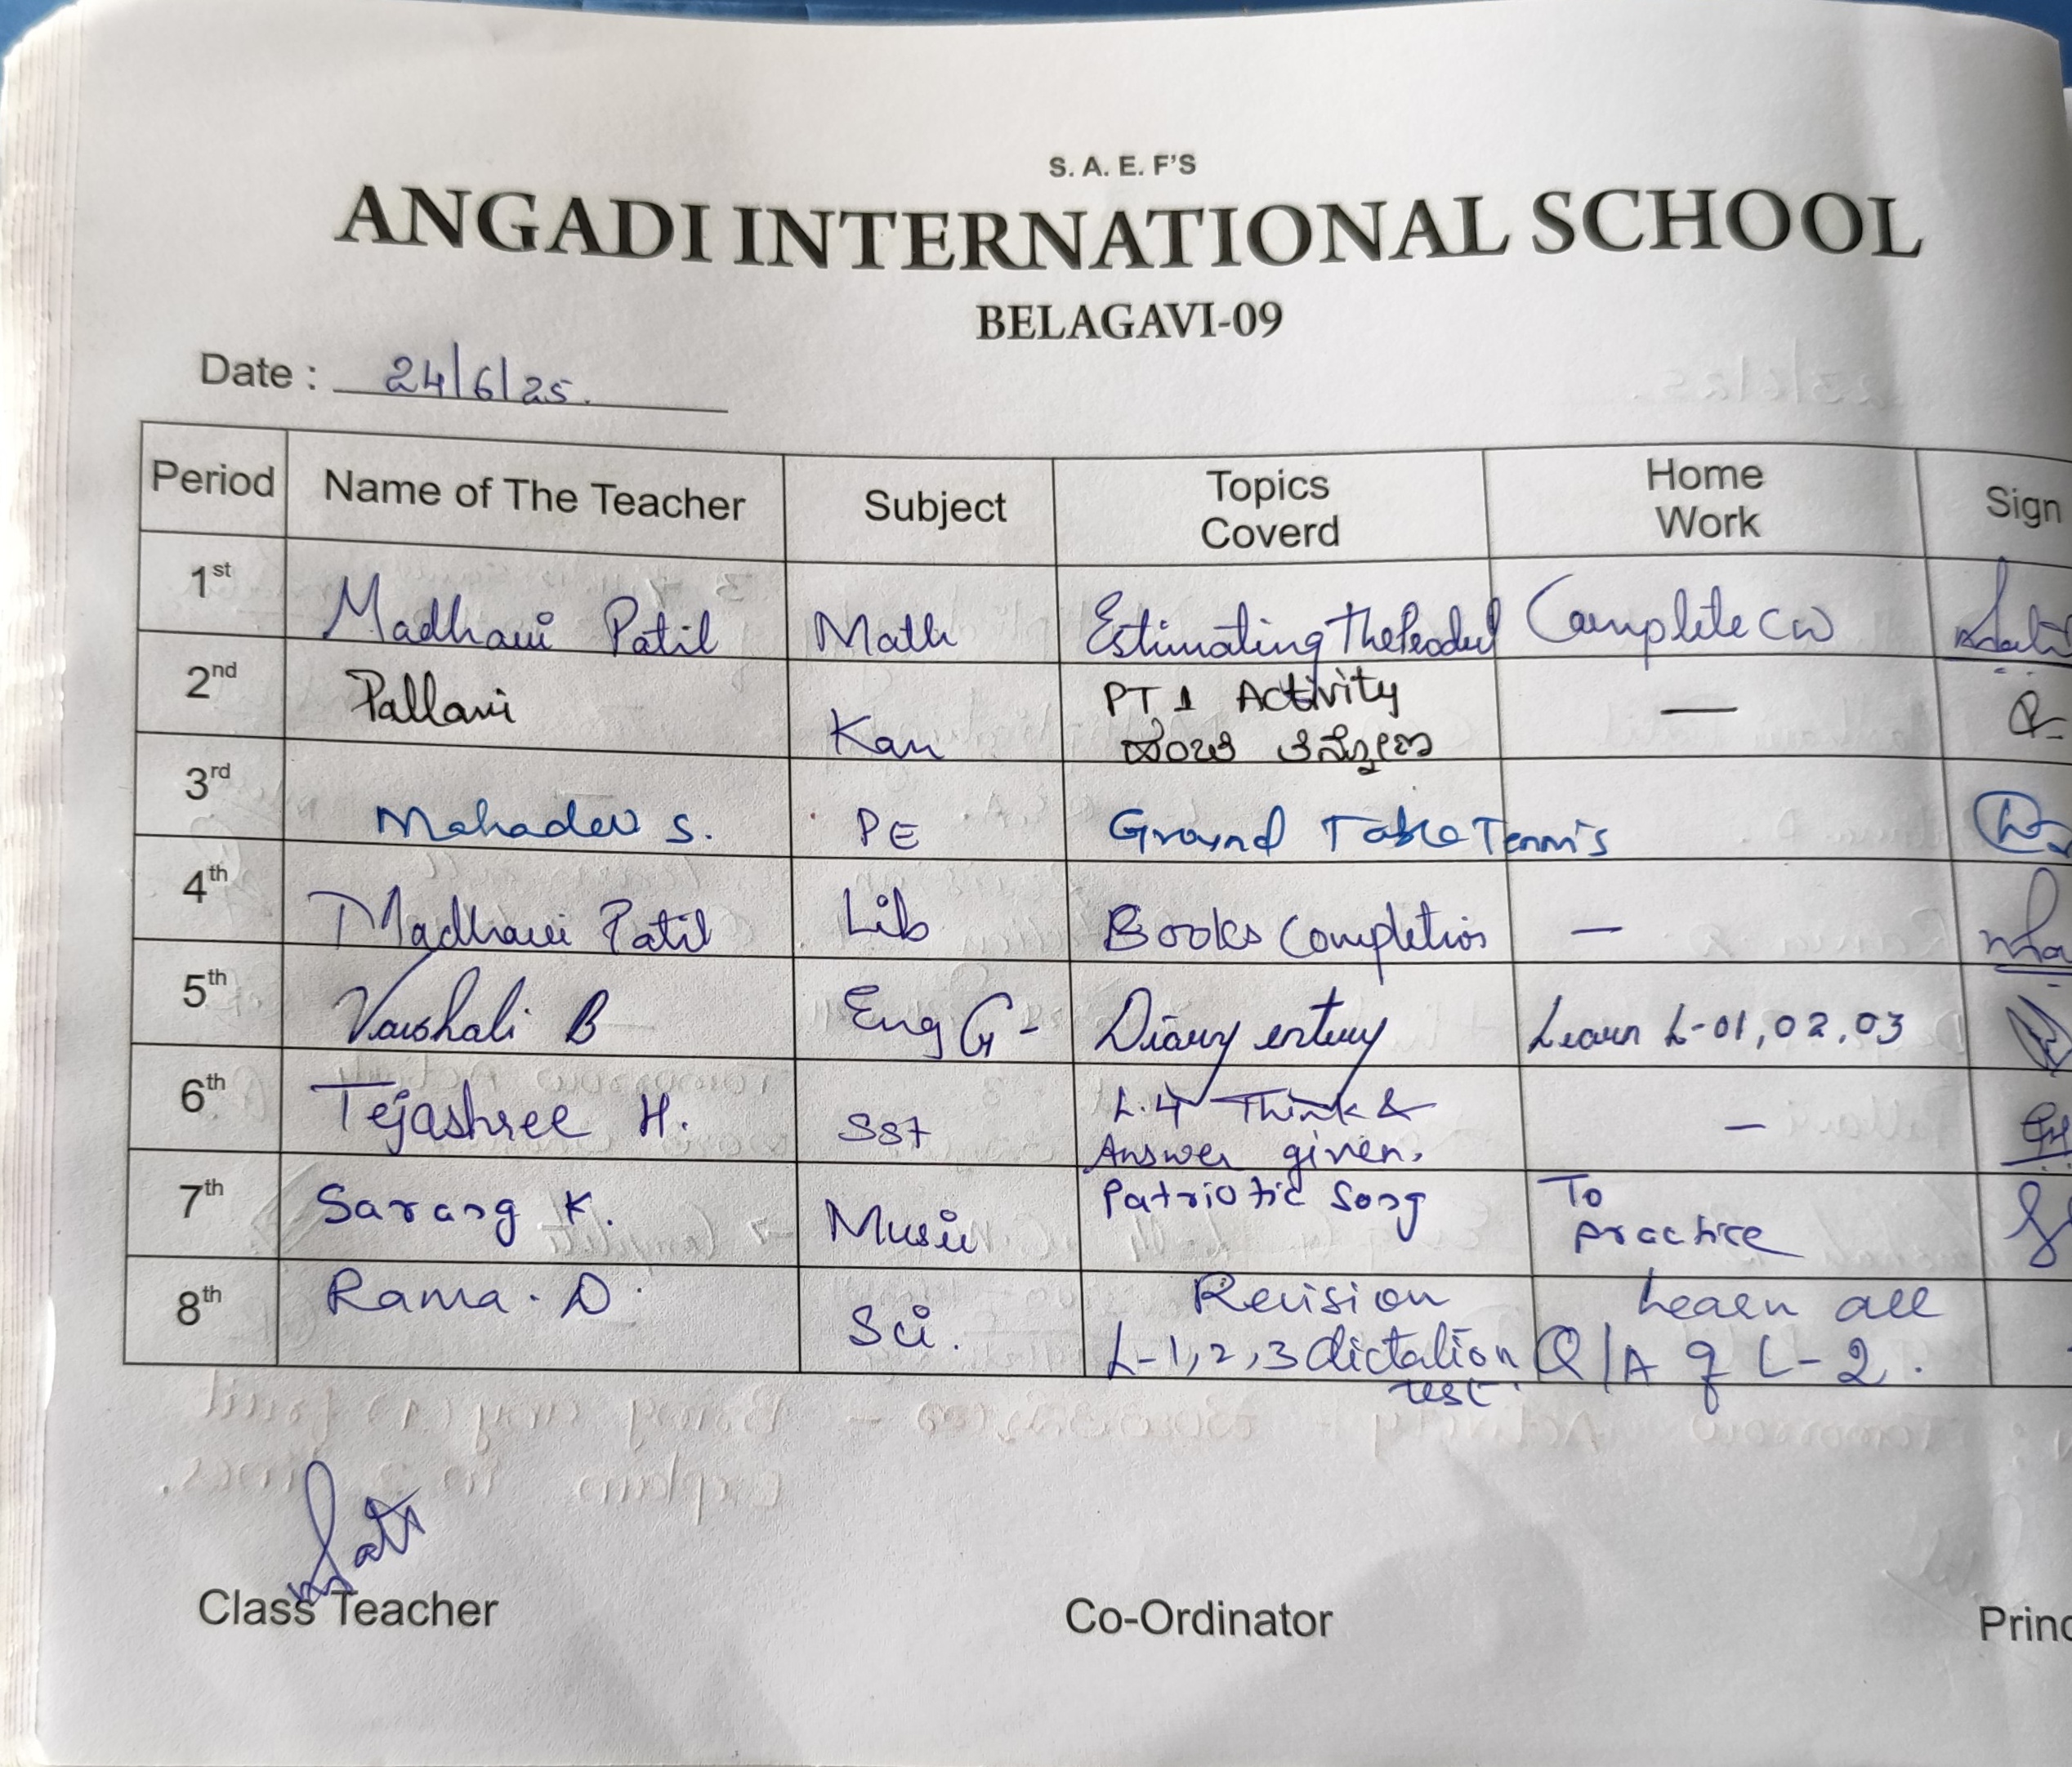 S. A. E. F'S
ANGADI INTERNATIONAL SCHOOL
BELAGAVI-09
Date : 24/6/25.
Period Name of The Teacher Subject Topics Coverd Home Work Sign
1st Madhavi Patil Math Estimating The Product Complete CW
2nd Pallavi Kan PT 1 Activity —
3rd Mahadev S. PE Ground Table Tennis
4th Madhavi Patil Lib Books Completion —
5th Vaishali B Eng G- Diary entry Learn L-01, 02, 03
6th Tejashree H. SST L.4 Think &
Answer given. -
7th Sarang K. Music Patriotic Song To
practice
8th Rama. D. Sci. Revision Learn all
L-1,2,3 dictation Q/A of L-2.
test.
Class Teacher Co-Ordinator